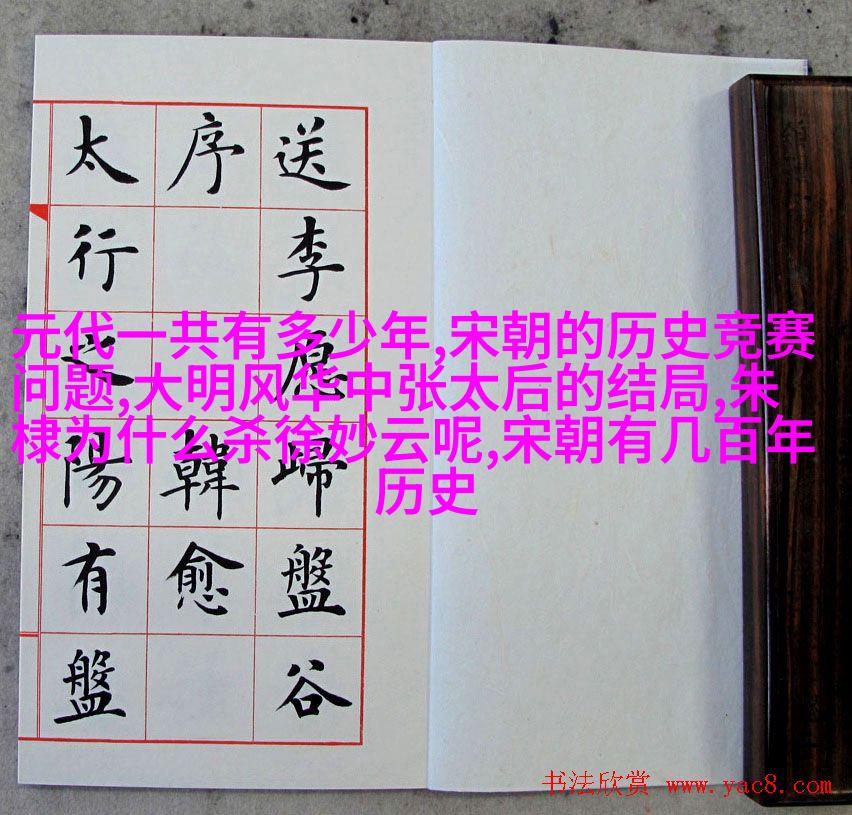 送李愿歸盤谷
序 韓愈
太行之陽有盤
元代一共有多少年,宋朝的历史竞赛
问题,大明风华中张太后的结局,朱
棣为什么杀徐妙云呢,宋朝有几百年
历史
书法欣赏 www.yac8.com